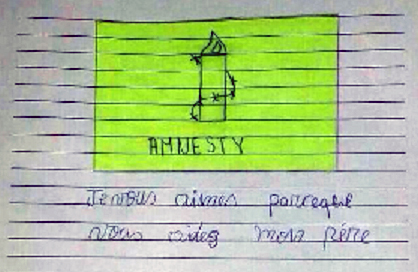 AMNESTY
Je vous aimes parceque
vous aidez mon père